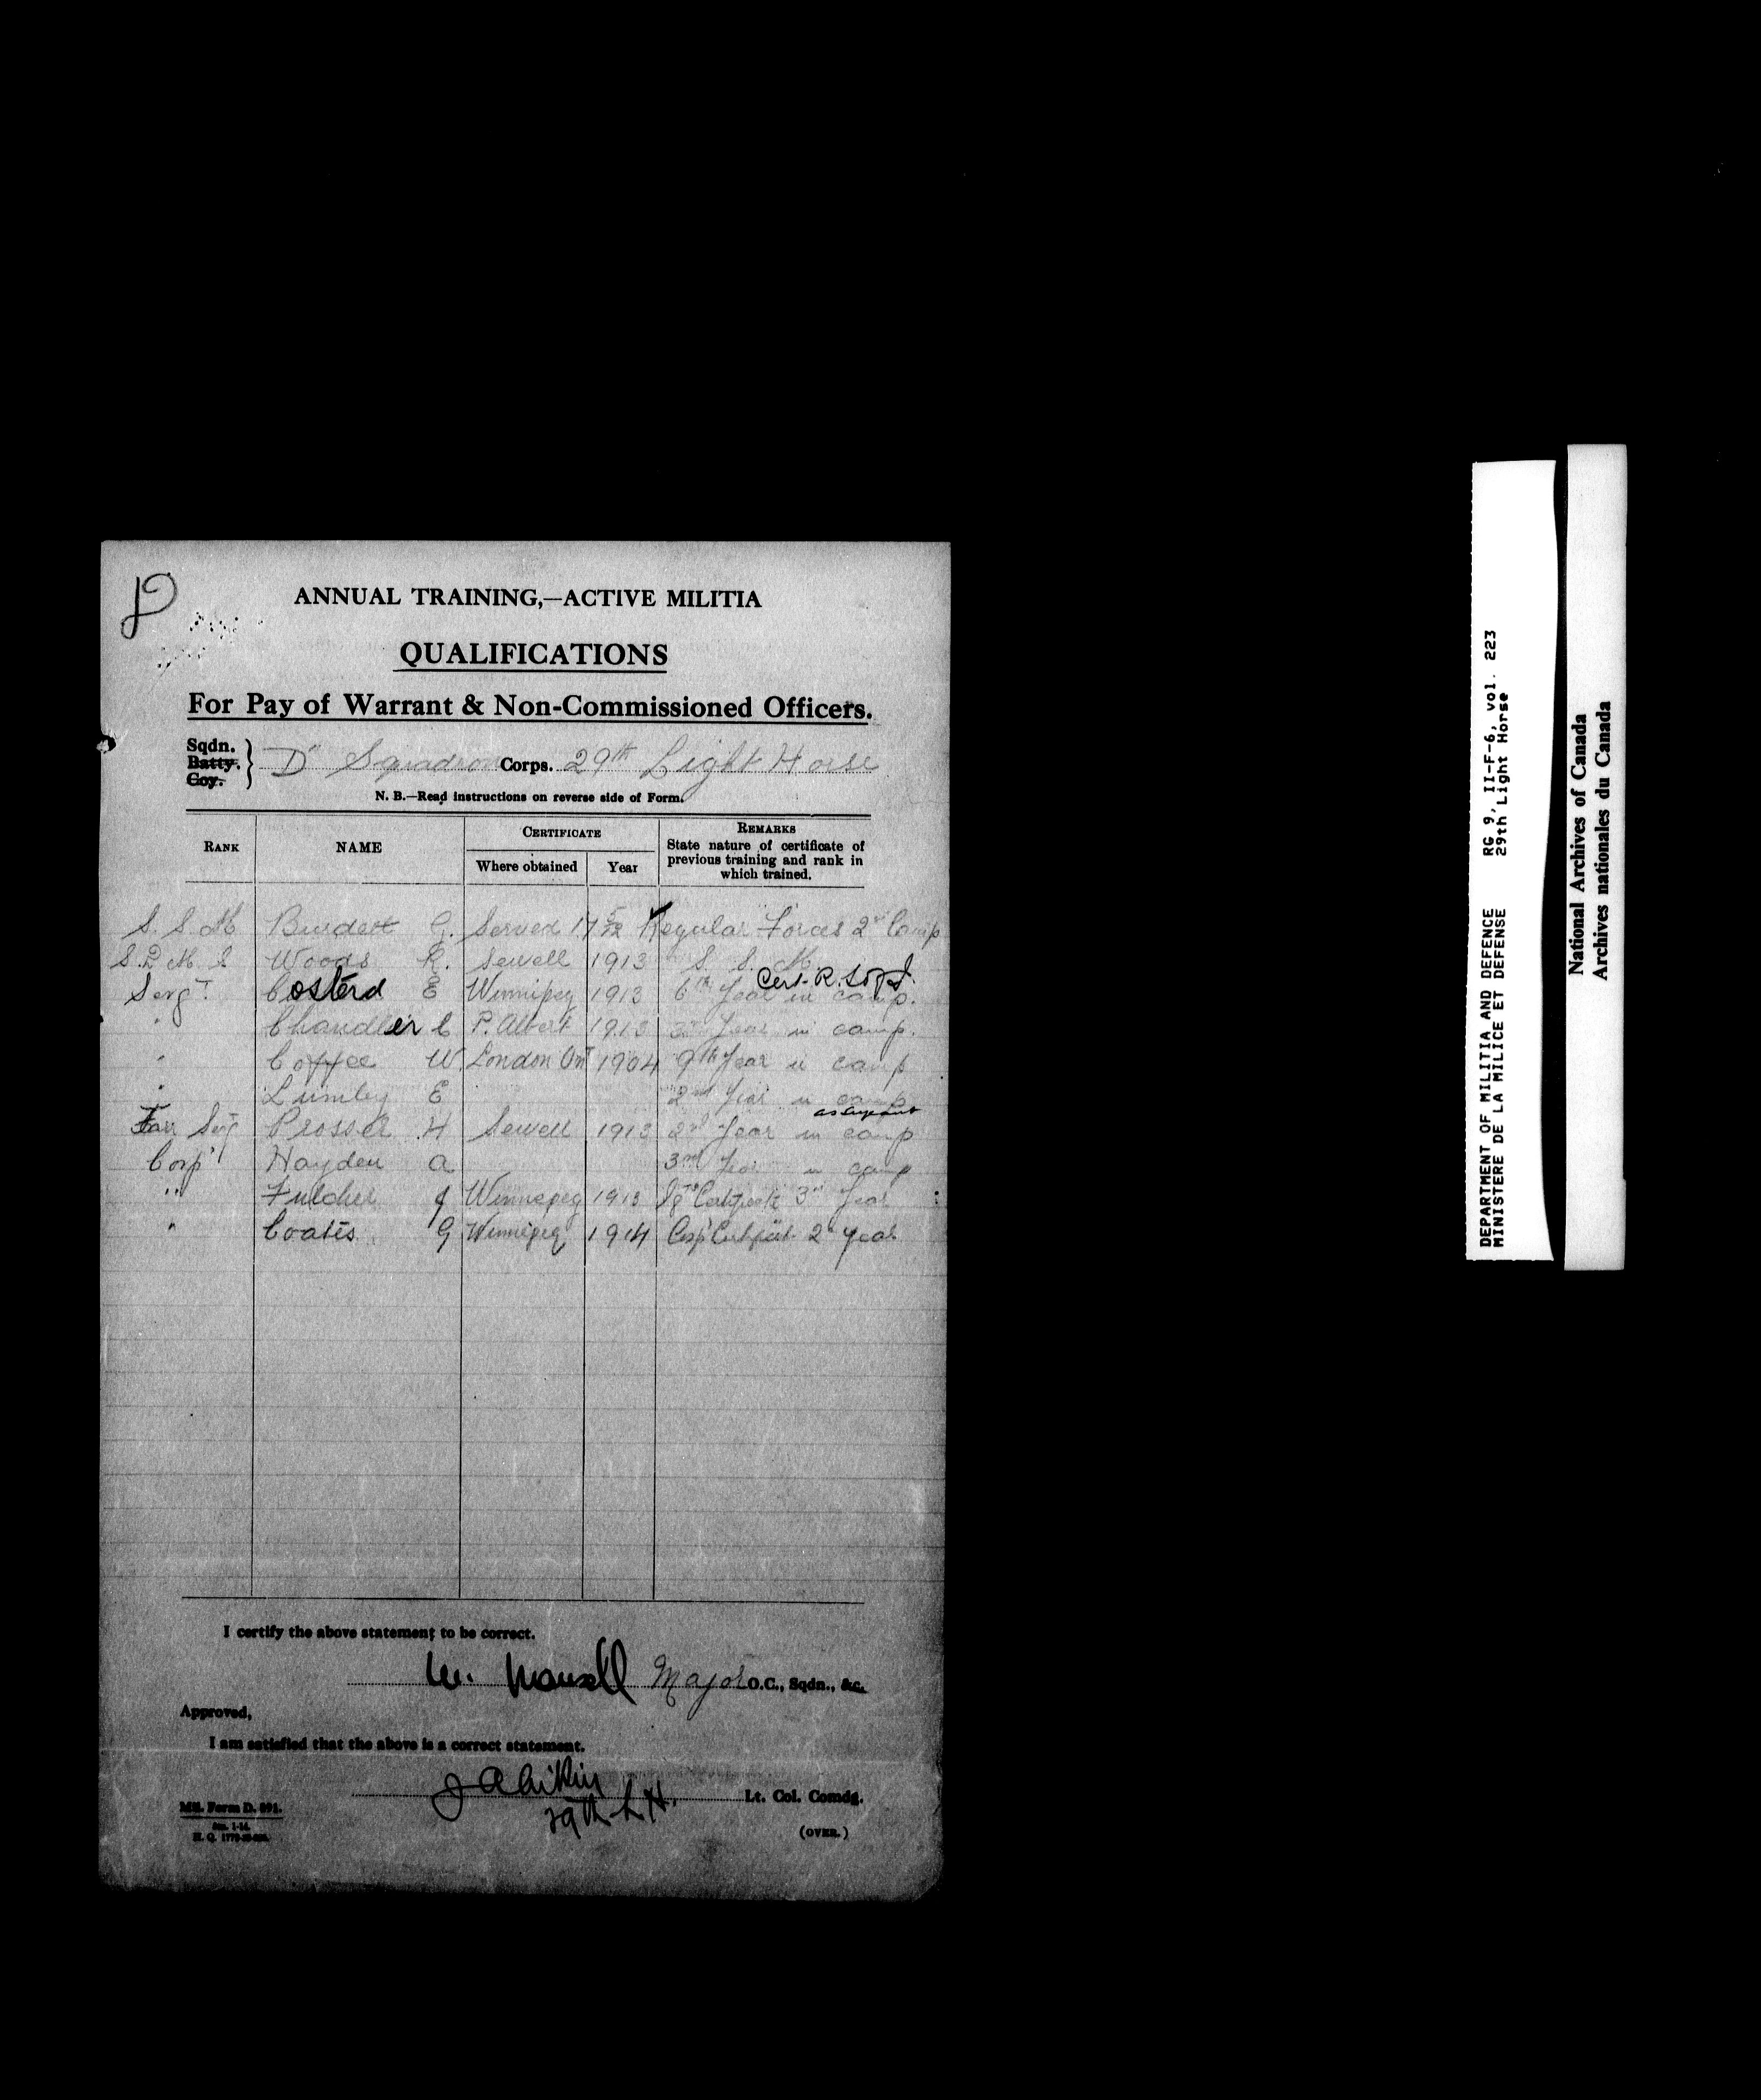 D
ANNUAL TRAINING,—ACTIVE MILITIA
QUALIFICATIONS
For Pay of Warrant & Non-Commissioned Officers.
Sqdn.
Batty.
Coy.
D" Squadron Corps. 29th Light Horse
N. B.—Read instructions on reverse side of Form.
RANK NAME CERTIFICATE Where obtained Year REMARKS
State nature of certificate of
previous training and rank in
which trained.
S. S. M Burdett G. Served Regular Forces 2nd Camp
S.Q.M.S Woods R. Sewell 1913 S. S. M.
Cert. R.
Sergt. Costerd E Winnipeg 1913 6th Year in camp.
" Chandler C P. Albert 1913 Year in camp.
" Coffee W. London Ont 1904 9th Year in camp
" Lumley E 2nd Year in camp
as Sergeant
Farr Serg Prosser H Sewell 1913 2nd Year in camp
Corpl Hayden A 3rd Year in camp
" Fulcher J Winnepeg 1913 3rd Year
" Coates G Winnipeg 1914 2nd Year
I certify the above statement to be correct.
W. Major O.C., Sqdn., &c.
Approved,
I am satisfied that the above is a correct statement.
J A Aikin
29th L H. Lt. Col. Comdg.
Mil. Form D. 891.
(OVER.)
DEPARTMENT OF MILITIA AND DEFENCE RG 9, II-F-6, vol. 223
MINISTERE DE LA MILICE ET DEFENSE 29th Light Horse
National Archives of Canada
Archives nationales du Canada